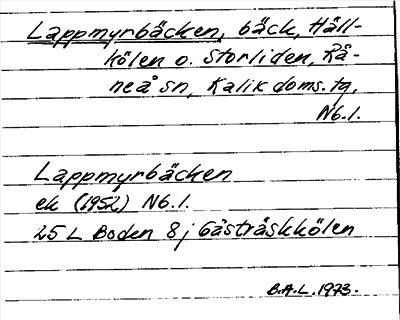 Lappmyrbäcken, bäck, Håll-
kölen o. Storliden, Rå-
neå sn, Kalix doms. tg,
Nb. l.
Lappmyrbäcken
ek (1952) Nb. l.
25 L Boden 8 j Gästräskkölen
B.A.L. 1973.